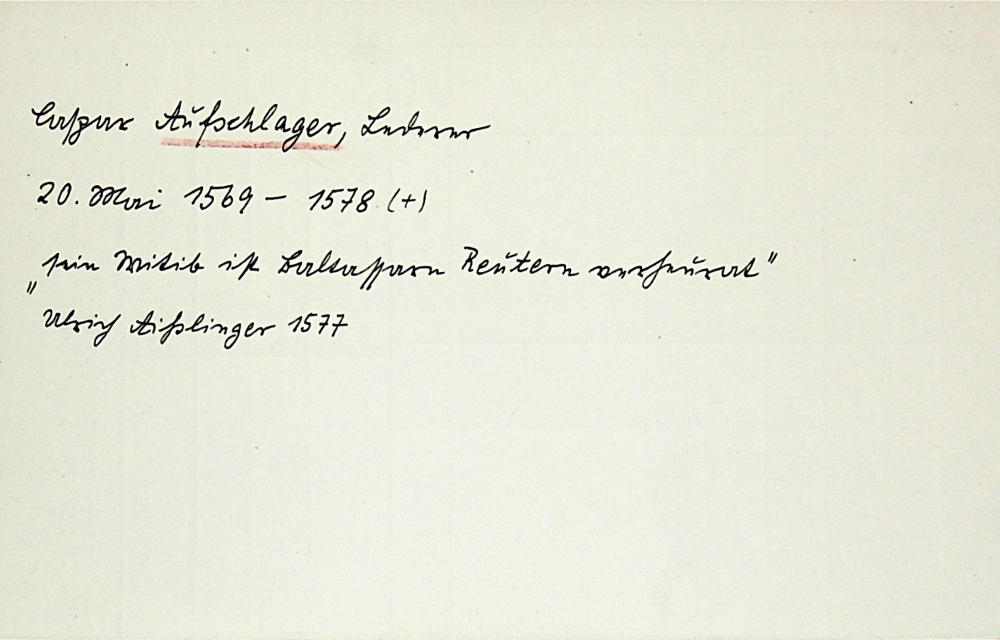 Caspar Aufschlager, Lederer
20. Mai 1569 – 1578 (+)
"sein Witib ist Baltassarn Reutern verheurat"
Ulrich Aißlinger 1577